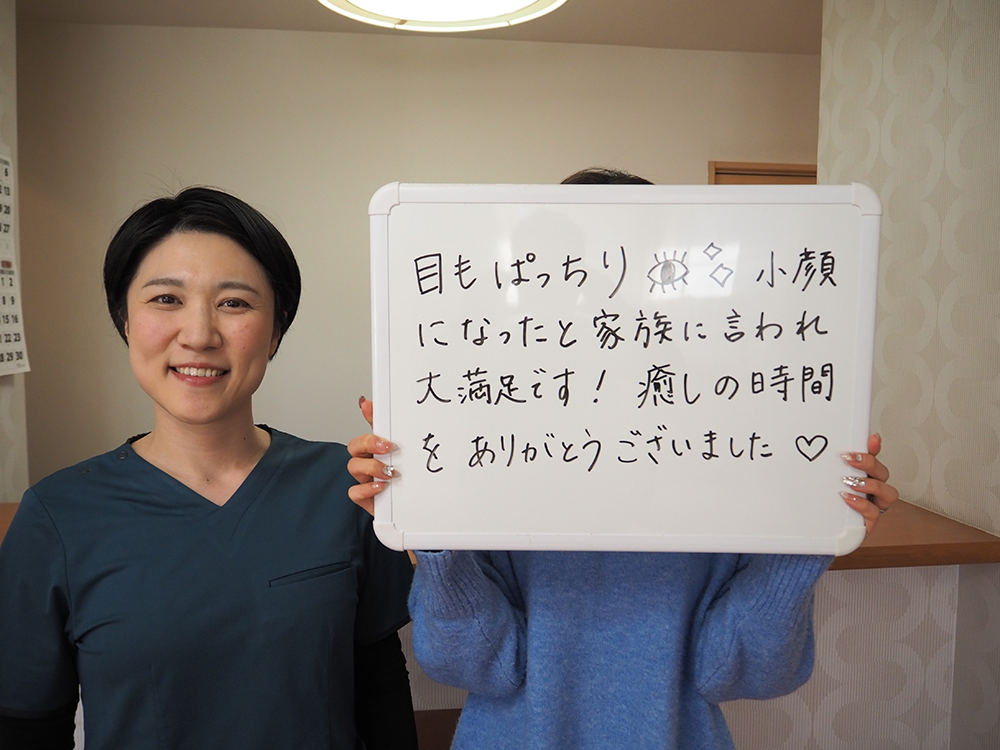 目もぱっちり 小顔
になったと家族に言われ
大満足です! 癒しの時間
をありがとうございました♡
6
13
20
27
1 2
8 9
15 16
22 23
29 30